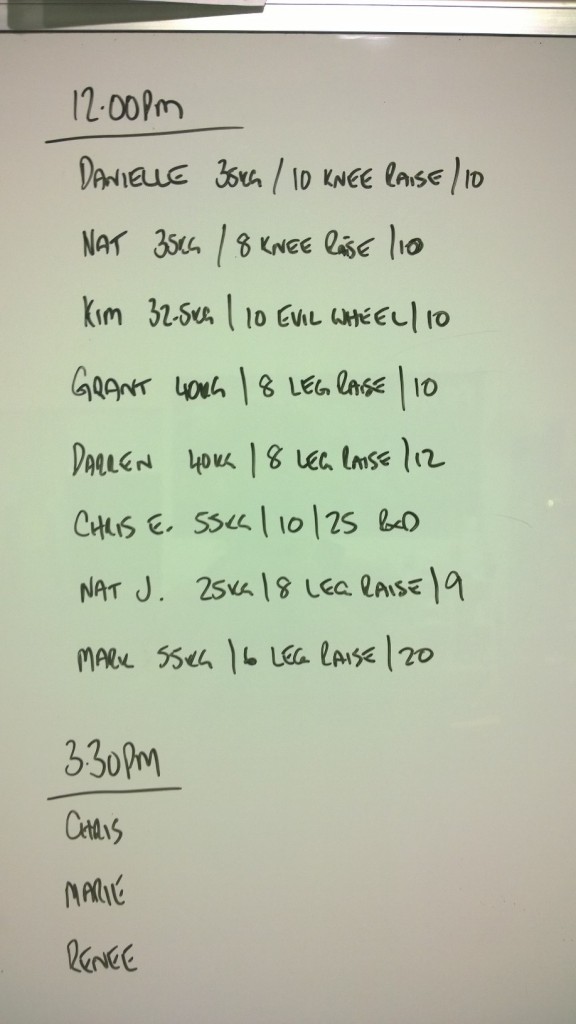 12.00PM
DANIELLE 35KG / 10 KNEE RAISE / 10
NAT 35KG / 8 KNEE RAISE / 10
KIM 32.5KG | 10 EVIL WHEEL | 10
GRANT 40KG | 8 LEG RAISE | 10
DARREN 40KG | 8 LEG RAISE | 12
CHRIS E. 55KG | 10 | 25 RXD
NAT J. 25KG | 8 LEG RAISE | 9
MARK 55KG | 6 LEG RAISE | 20
3.30PM
CHRIS
MARIE
RENEE